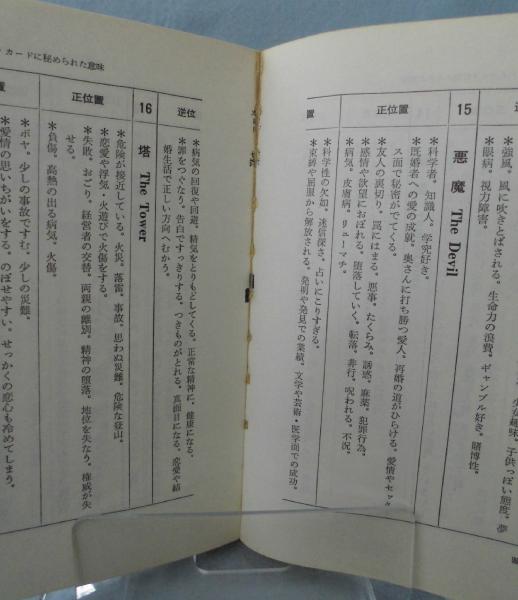 強風。風に吹きとばされる。生命力の浪費。ギャンブル好き。賭博性。
眼病。視力障害。
15 悪魔 The Devil
正位置
*科学者。知識人。学究好き。
*既婚者への愛の成就。奥さんに打ち勝つ愛人。再婚の道がひらける。愛情やセックス面で秘密がでてくる。
*友人の裏切り。罠にはまる。悪事。たくらみ。誘惑。麻薬。犯罪行為。
*感情や欲望におぼれる。堕落していく。転落。非行。呪われる。不況。
*病気。皮膚病。リューマチ。
置
*科学性の欠如。迷信深さ。占いにこりすぎる。
*束縛や屈服から解放される。発明や発見での業績。文学や芸術・医学面での成功。
カードに秘められた意味
逆位
*病気の回復や回避。精気をとりもどしてくる。正常な精神に。健康になる。
*罪をつぐなう。告白ですっきりする。つきものがとれる。真面目になる。恋愛や結
婚生活で正しい方向へむかう。
16 塔 The Tower
正位置
*危険が接近している。火災。落雷。事故。思わぬ災難。危険な登山。
*恋愛や浮気・火遊びで火傷をする。
*失敗。おごり。経営者の交替。両親の離別。精神の堕落。地位を失なう。権威が失
せる。
*負傷。高熱の出る病気。火傷。
置
*ボヤ。少しの事故ですむ。少しの災難。
*愛情の思いちがいをする。のぼせやすい。せっかくの恋心も冷めてしまう。